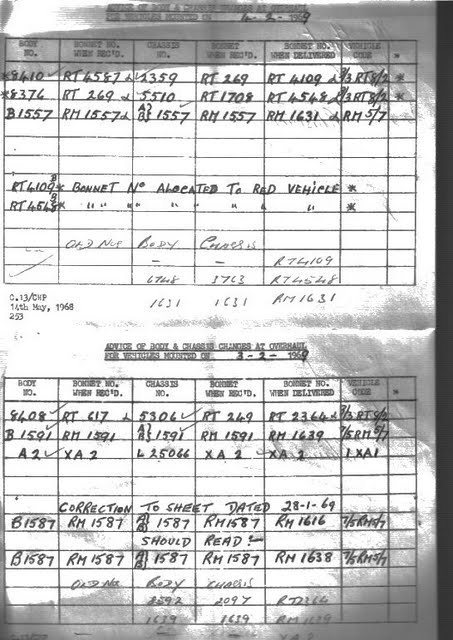 ADVICE OF BODY & CHASSIS CHANGES AT OVERHAUL
FOR VEHICLES MOUNTED ON 4-2-1969
BODY NO. BONNET NO. WHEN REC'D. CHASSIS NO. BONNET WHEN REC'D. BONNET NO. WHEN DELIVERED VEHICLE CODE *
*8410 ✓ RT 4587 & 2359 RT 269 RT 4109 & 2/3 RT 8/2 *
*8376 RT 269 & 5510 RT 1708 RT 4548 & 2/3 RT 8/2 *
B1557 RM 1557 & A} B} 1557 RM 1557 RM 1631 & RM 5/7
RT4109 B * BONNET NO ALOCATED TO RED VEHICLE *
RT4548 B * " " " " " " " *
OLD NOS BODY CHASSIS
- - RT4109
6748 3763 RT4548
1631 1631 RM1631
C.13/CHP
14th May, 1968
253
ADVICE OF BODY & CHASSIS CHANGES AT OVERHAUL
FOR VEHICLES MOUNTED ON 3-2-1969
BODY NO. BONNET NO. WHEN REC'D. CHASSIS NO. BONNET WHEN REC'D. BONNET NO. WHEN DELIVERED VEHICLE CODE *
8408 ✓ RT 617 & 5306 ✓ RT 249 RT 2364 & 2/3 RT 8/2
B 1591 ✓ RM 1591 A} B} 1591 ✓ RM 1591 RM 1639 7/5 RM 5/7
A 2 ✓ XA 2 L 25066 XA 2 ✓ XA 2 1 XA1
CORRECTION TO SHEET DATED 28-1-69
B1587 RM 1587 A} B} 1587 RM 1587 RM 1616 7/5 RM 5/7
SHOULD READ :-
B1587 RM 1587 A} B} 1587 RM 1587 RM 1638 7/5 RM 5/7
OLD NO BODY CHASSIS
2097 RT2364
1639 1639 RM 1639